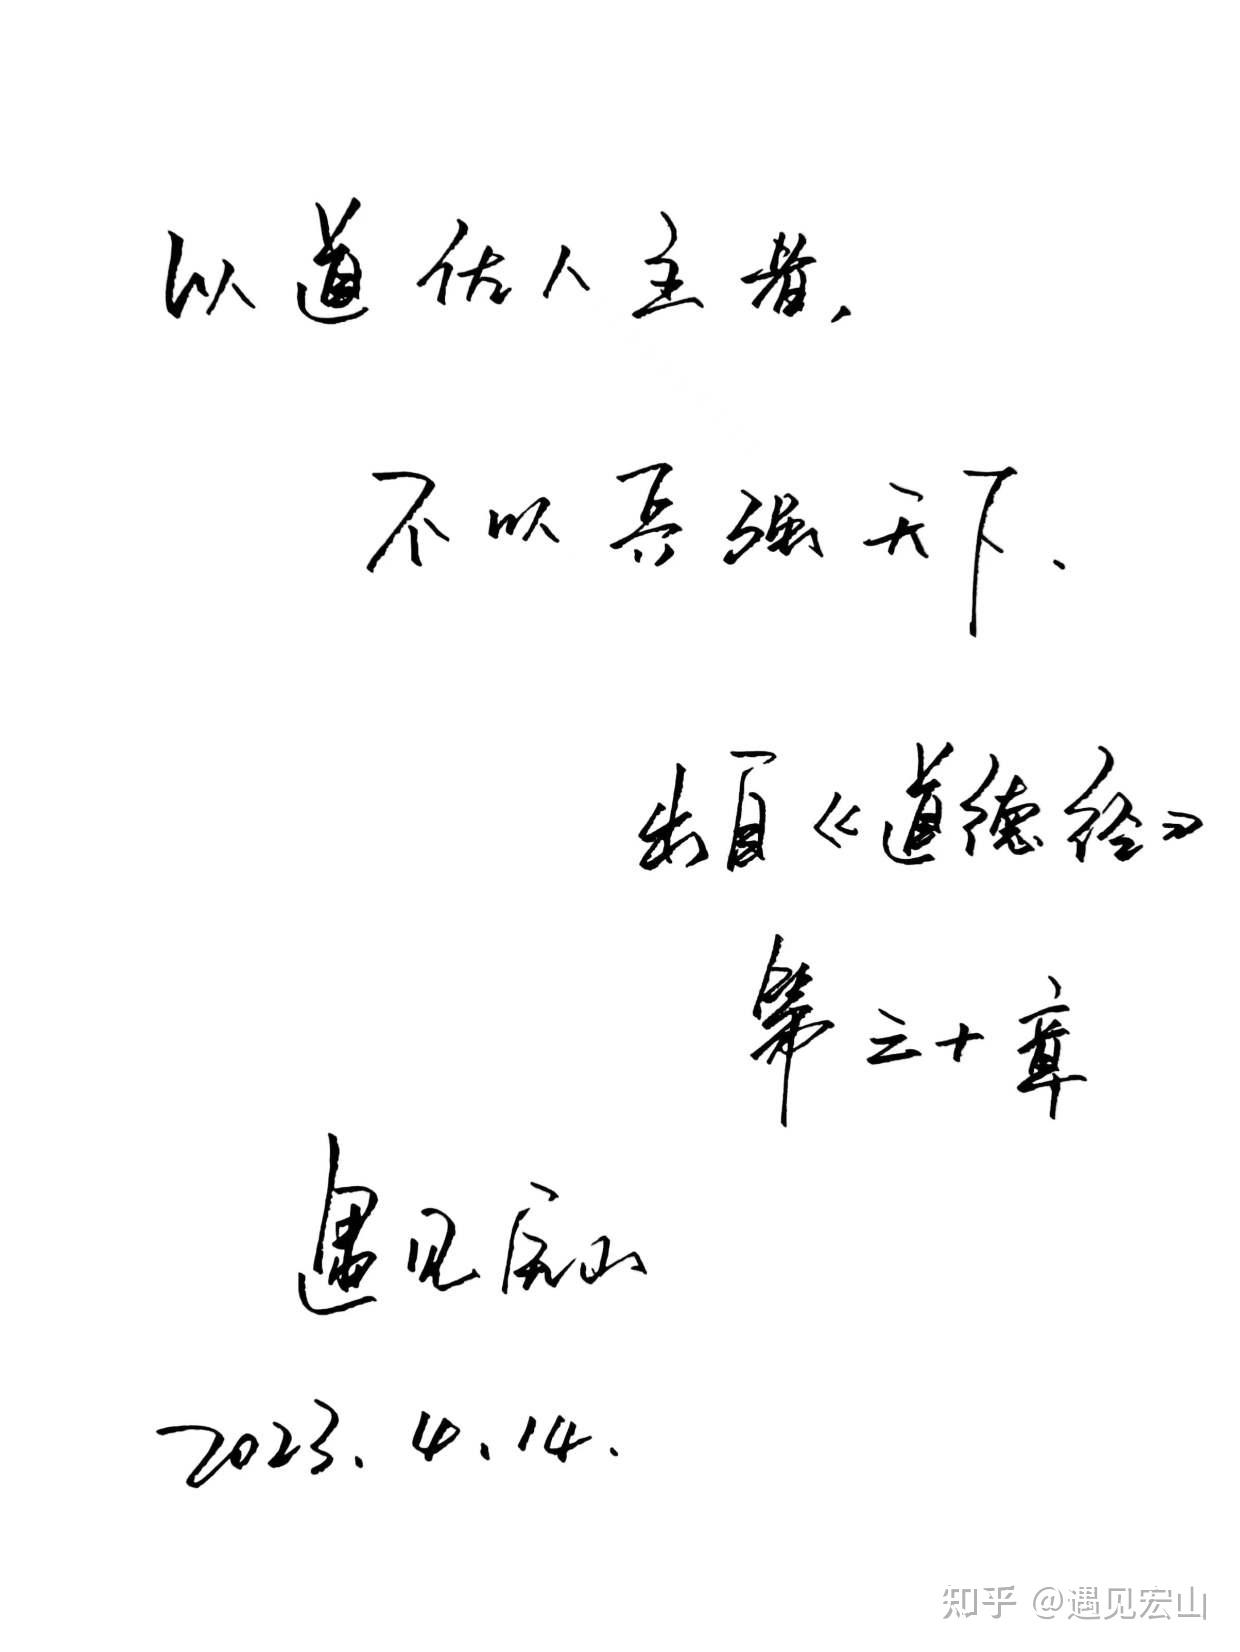 以道佐人主者，
不以兵强天下、
出自《道德经》
第三十章
遇见宏山
2023.4.14.
知乎 @遇见宏山